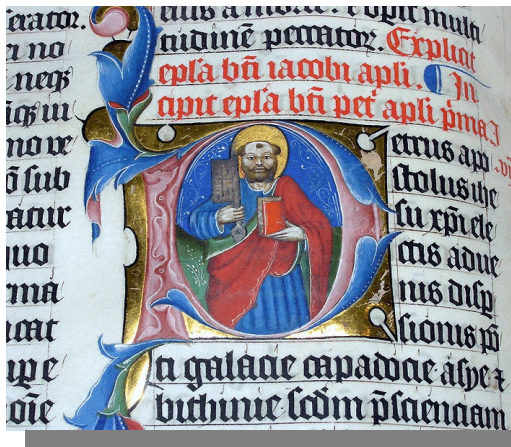 erator.
er no
neqꝫ
iqꝫ in
no ve
ō sub
atur
quo
rma
icat
upe
oīe
tudinē peccatoꝝ. Explicit
epl̄a bt̄i iacobi apl̄i. In
cipit epl̄a bt̄i pet apl̄i p̄ma
Petrus apo
stolus ihe
su xp̄i ele
ctis adue
nis disp̄
sionis pō
ti galacie capadocie asye ⁊
bithinie scd̄m p̄scienciam